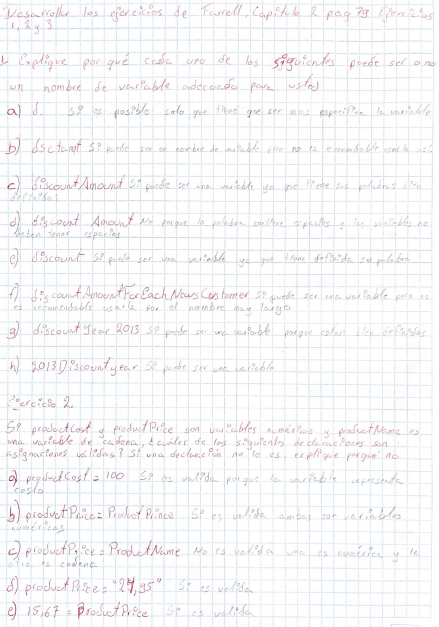 Desarrollar los ejercicios de Farrell, Capitulo 2 pag 79 Ejercicios
1, 2 y 3
1 Explique por qué cada uno de los siguientes puede ser o no
un nombre de variable adecuado para usted
a) d. Si es posible solo que tiene que ser mas especifica la variable
b) dsctamt Si puede ser un nombre de variable pero no es recomendable usarla así
c) discountAmount Si puede ser una variable ya que tiene sus palabras bien
definidas
d) discount Amount No porque la palabra contiene espacios y las variables no
deben tener espacios
e) discount Si puede ser una variable ya que tiene definida su palabra
f) discountAmountForEachNewCustomer Si puede ser una variable pero no
es recomendable usarla por el nombre muy largo
g) discountYear2013 Si puede ser una variable porque estan bien definidas
h) 2013Discountyear Si puede ser una variable
Ejercicio 2.
Si productCost y productPrice son variables numéricas y productName es
una variable de cadena, ¿cuáles de las siguientes declaraciones son
asignaciones válidas? Si una declaración no lo es, explique porqué no
a) productCost = 100 Si es valida porque la variable representa
costo
b) productPrice = ProductPrince Si es valida ambas son variables
numéricas
c) productPrice = ProductName No es valida una es numérica y la
otra es cadena
d) productPrice = "24,95" Si es valida
e) 15,67 = ProductPrice Si es valida